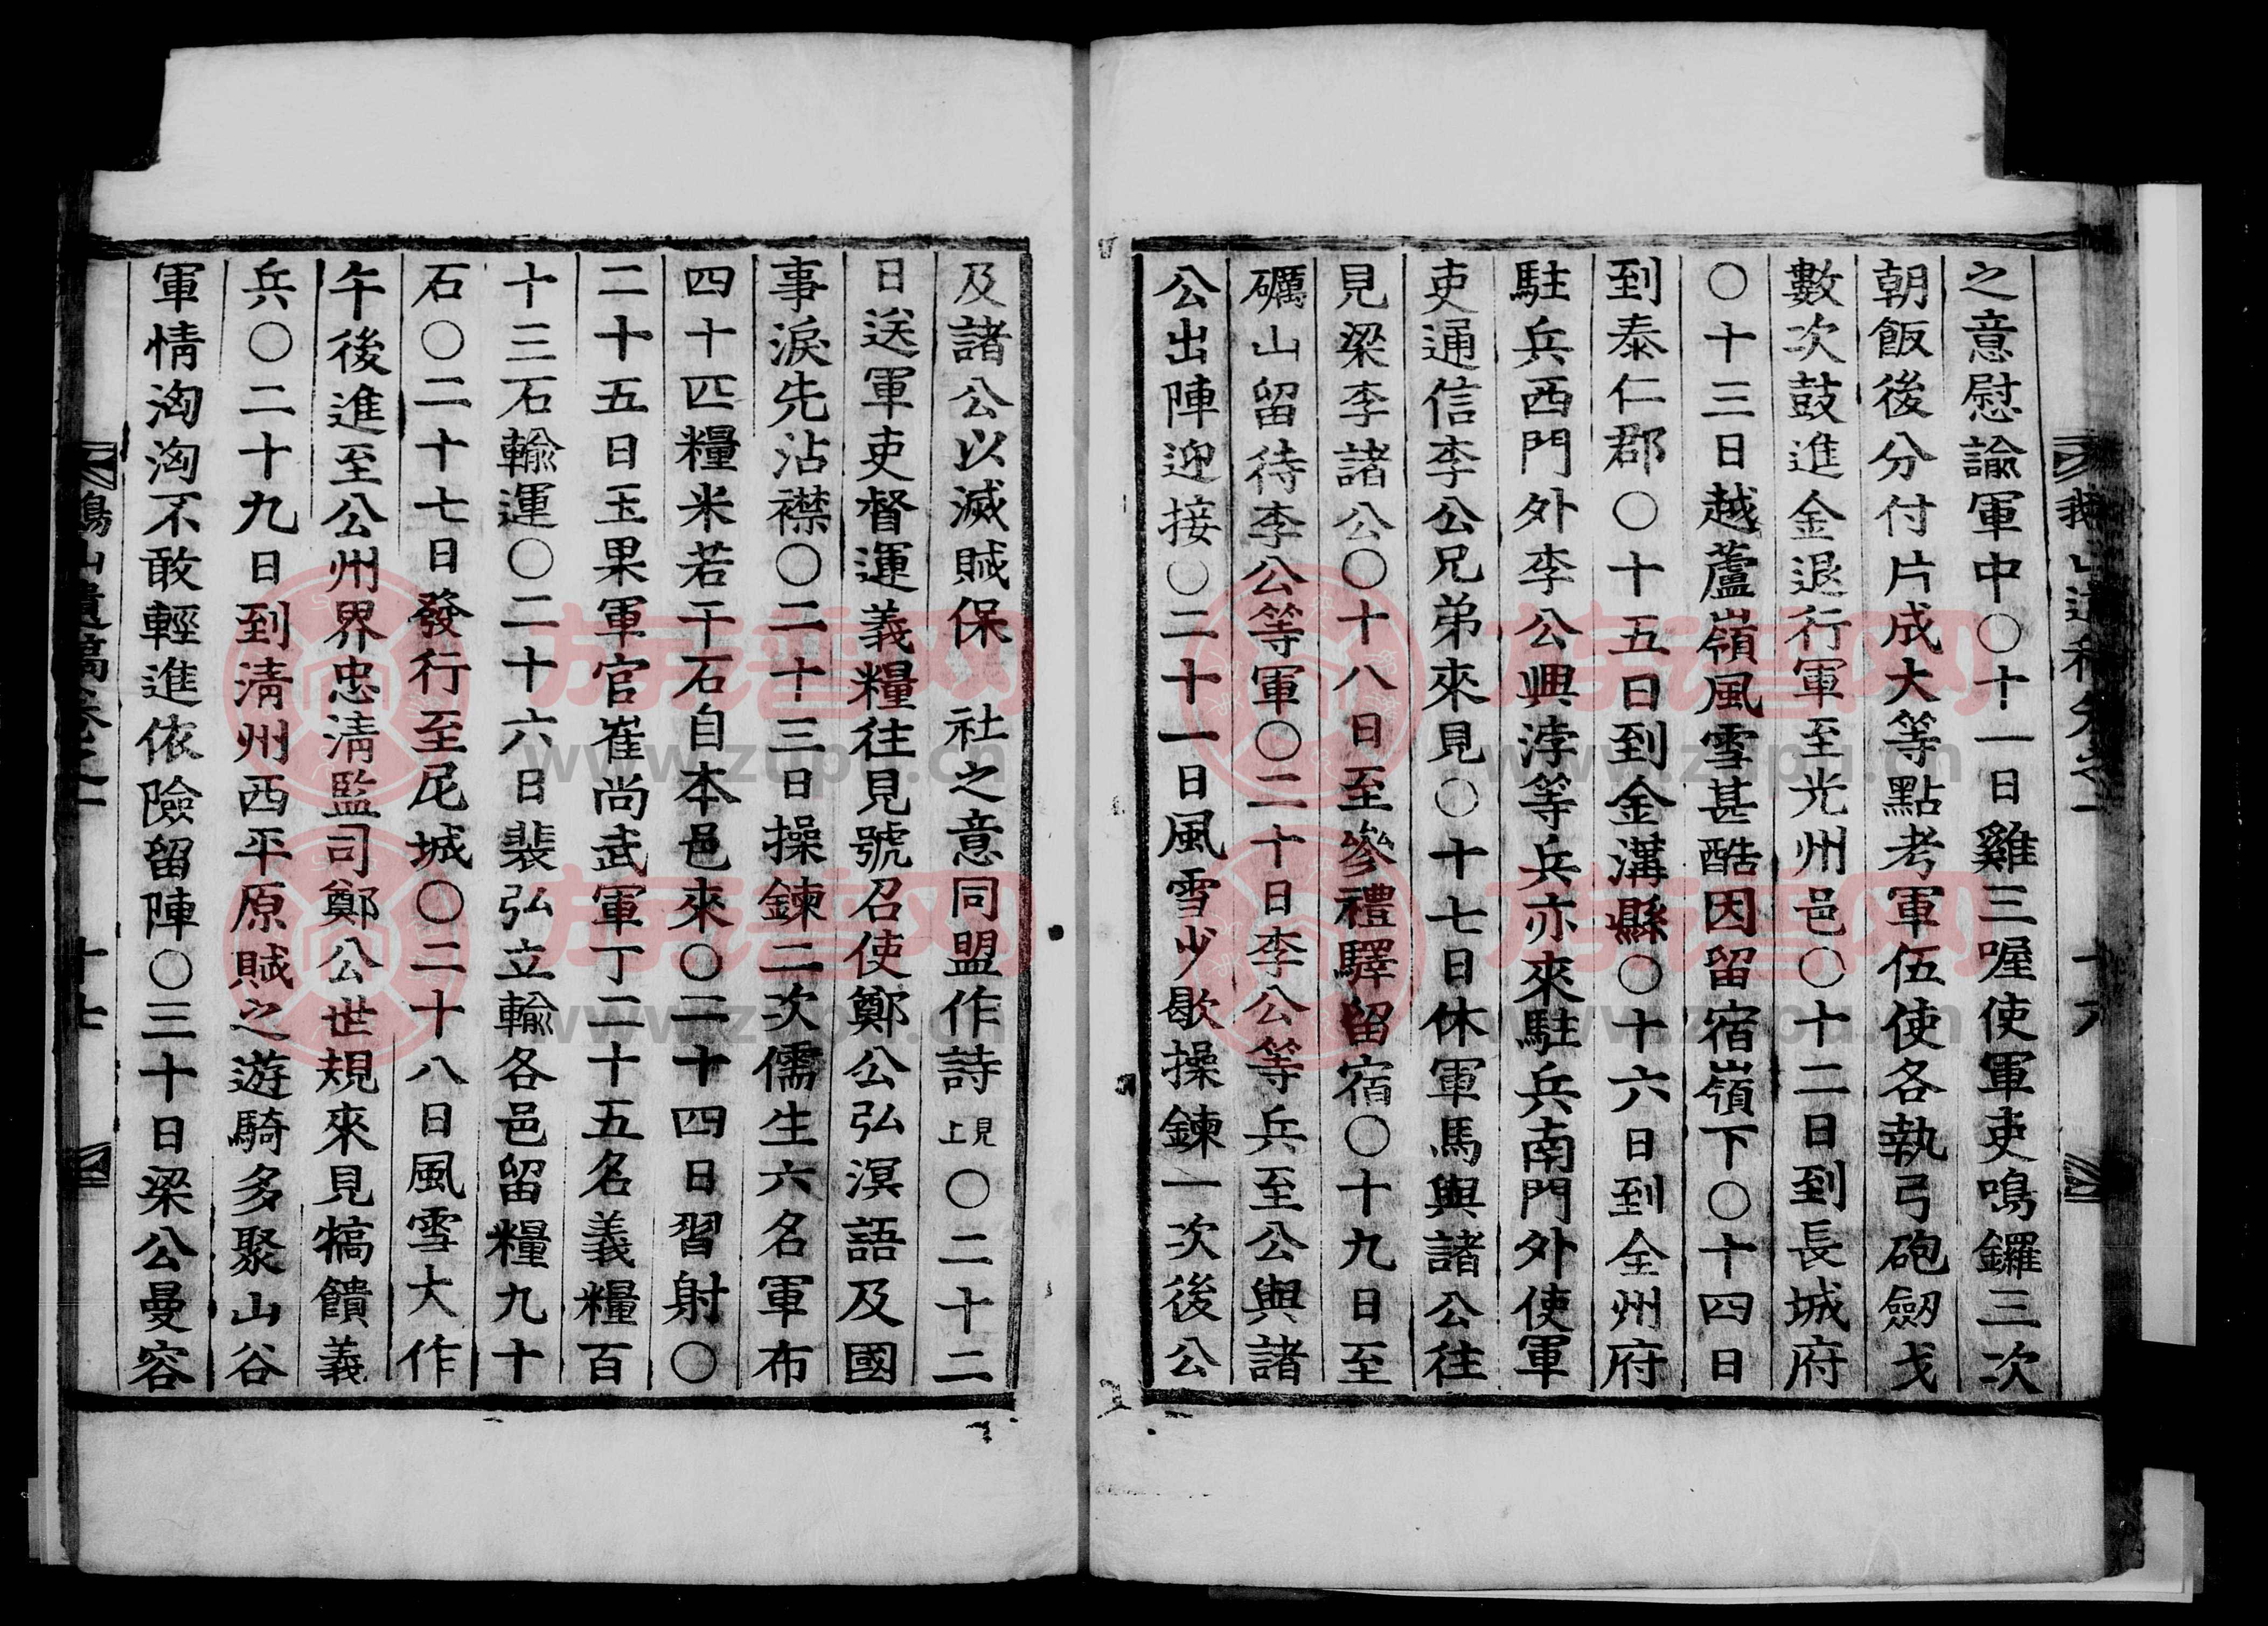 之意慰諭軍中〇十一日雞三喔使軍吏鳴鑼三次
朝飯後分付片成大等點考軍伍使各執弓砲劒戈
數次鼓進金退行軍至光州邑〇十二日到長城府
〇十三日越蘆嶺風雪甚酷因留宿嶺下〇十四日
到泰仁郡〇十五日到金溝縣〇十六日到全州府
駐兵西門外李公興浡等兵亦來駐兵南門外使軍
吏通信李公兄弟來見〇十七日休軍馬與諸公往
見梁李諸公〇十八日至參禮驛留宿〇十九日至
礪山留待李公等軍〇二十日李公等兵至公與諸
公出陣迎接〇二十一日風雪少歇操鍊一次後公
及諸公以滅賊保 社之意同盟作詩見上〇二十二
日送軍吏督運義糧往見號召使鄭公弘溟語及國
事淚先沾襟〇二十三日操鍊二次儒生六名軍布
四十匹糧米若干石自本邑來〇二十四日習射〇
二十五日玉果軍官崔尚武軍丁二十五名義糧百
十三石輸運〇二十六日裴弘立輸各邑留糧九十
石〇二十七日發行至尼城〇二十八日風雪大作
午後進至公州界忠淸監司鄭公世規來見犒饋義
兵〇二十九日到淸州西平原賊之遊騎多聚山谷
軍情洶洶不敢輕進依險留陣〇三十日梁公曼容
山遺稿卷之
十七
族谱网
www.zupu.cn